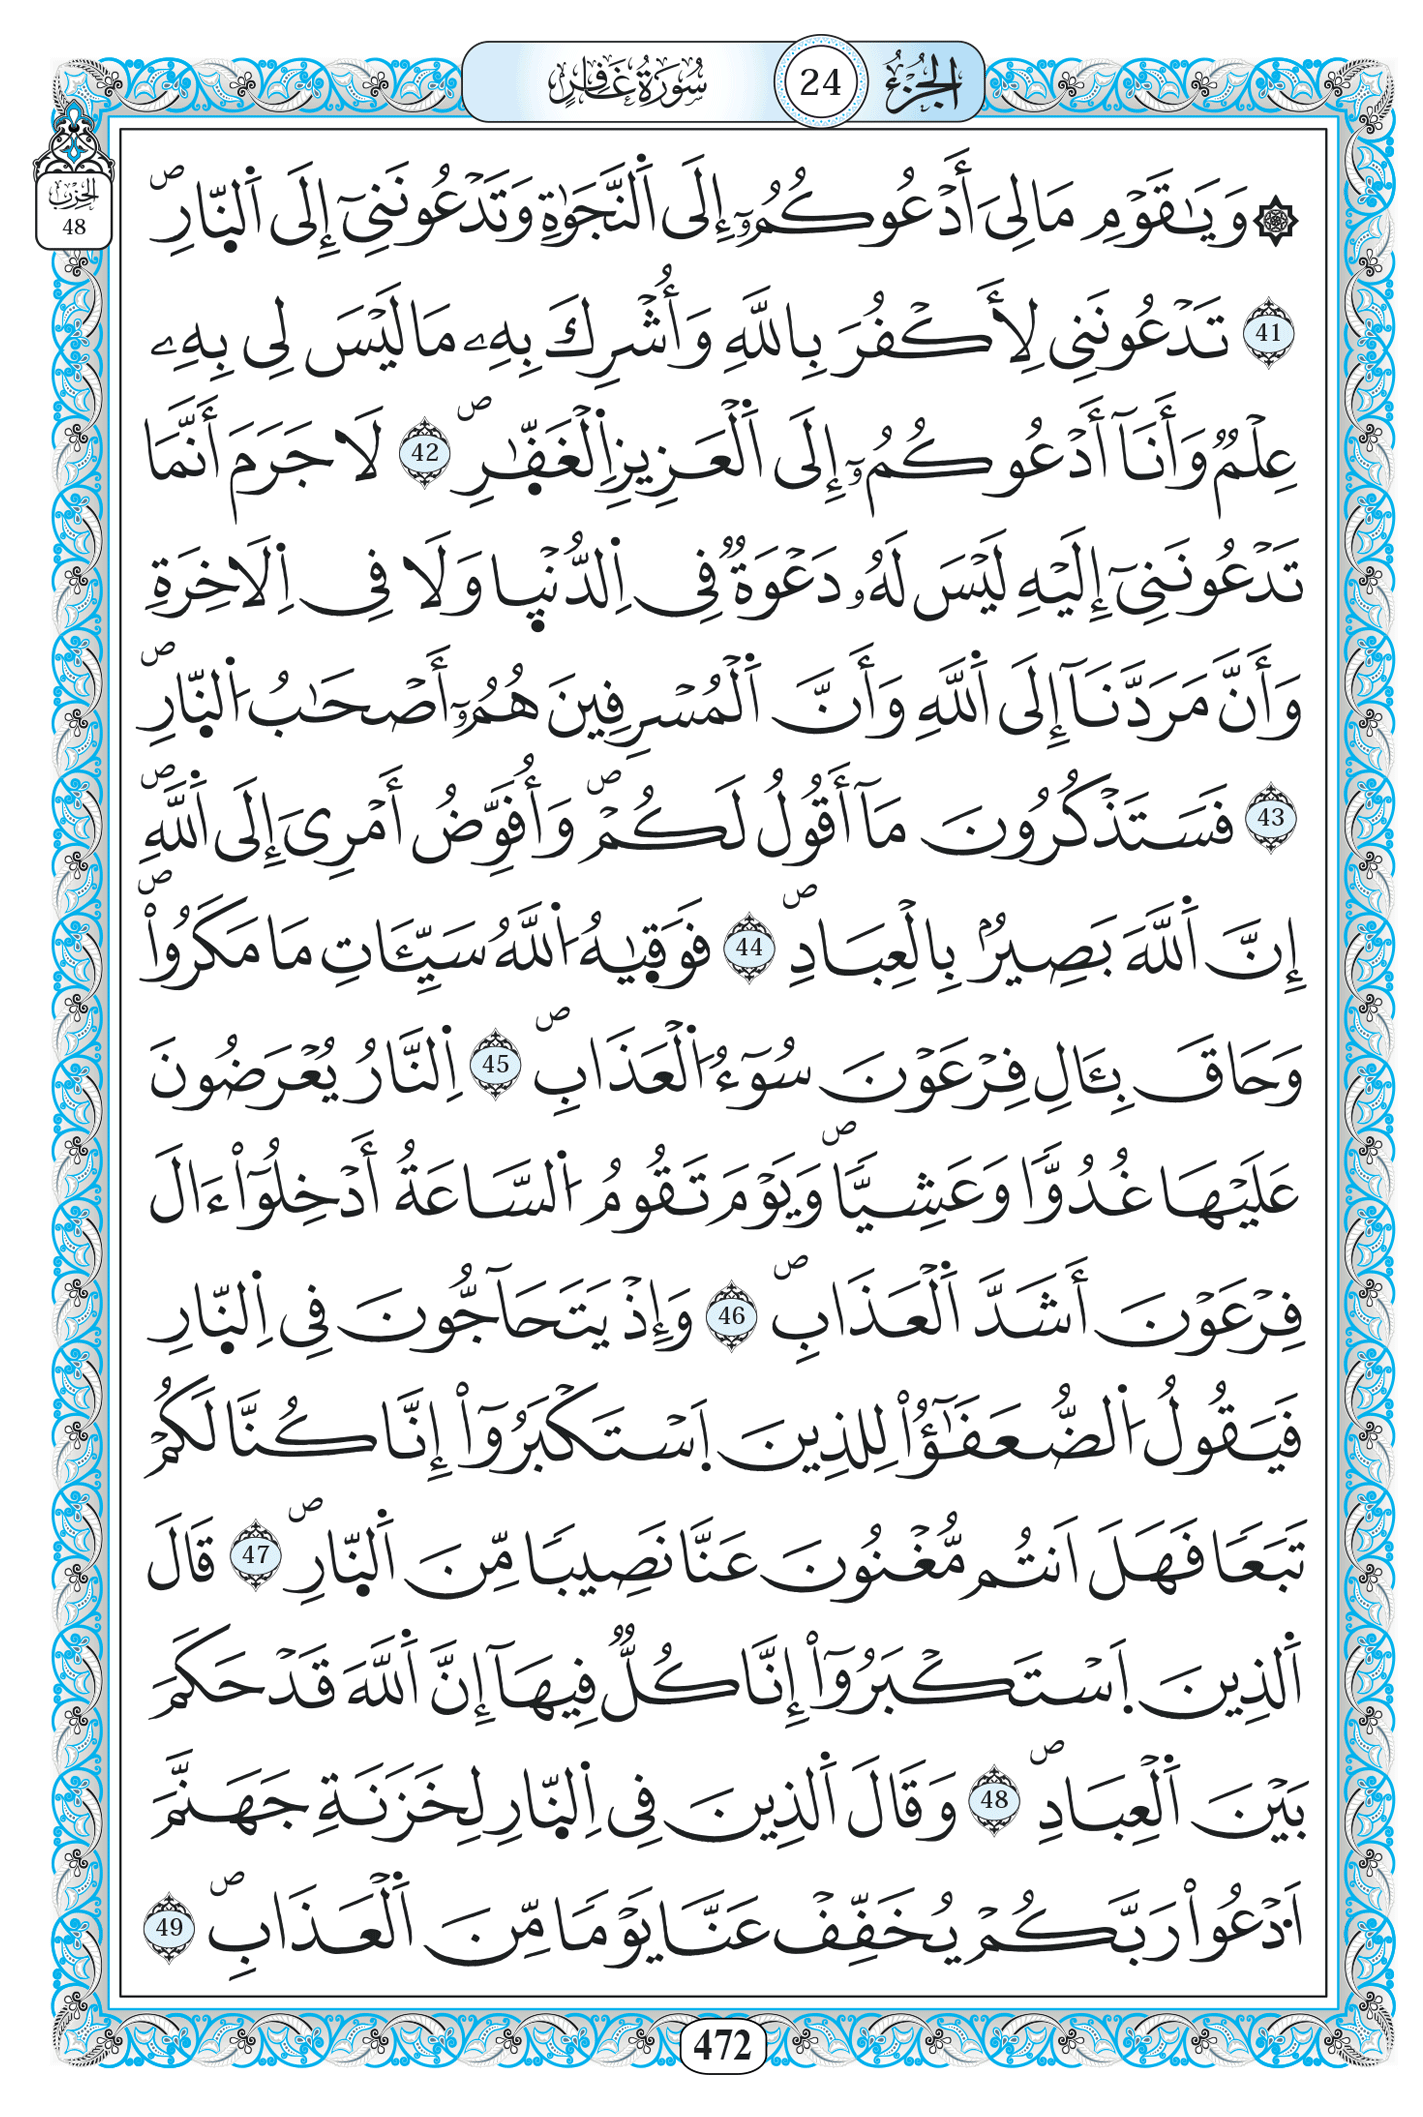 سُورَةُ غَافِرٍ
24
الجُزْءُ
الحِزْب
48
۞ وَيَٰقَوْمِ مَا لِىَ أَدْعُوكُمُۥٓ إِلَى اَ۬لنَّجَوٰةِ وَتَدْعُونَنِىٓ إِلَى اَ۬لنّ۪ارِۖ
41 تَدْعُونَنِى لِأَكْفُرَ بِاللَّهِ وَأُشْرِكَ بِهِۦ مَا لَيْسَ لِى بِهِۦ
عِلْمٌ وَأَنَآ أَدْعُوكُمُۥٓ إِلَى اَ۬لْعَزِيزِ اِ۬لْغَفّٰ۪رِۖ 42 لَا جَرَمَ أَنَّمَا
تَدْعُونَنِىٓ إِلَيْهِ لَيْسَ لَهُۥ دَعْوَةٌ فِى اِ۬لدُّنْي۪ا وَلَا فِى اِ۬لَاخِرَةِ
وَأَنَّ مَرَدَّنَآ إِلَى اَ۬للَّهِ وَأَنَّ اَ۬لْمُسْرِفِينَ هُمُۥٓ أَصْحَٰبُ اُ۬لنّ۪ارِۖ
43 فَسَتَذْكُرُونَ مَآ أَقُولُ لَكُمْۖ وَأُفَوِّضُ أَمْرِىَ إِلَى اَ۬للَّهِۖ
إِنَّ اَ۬للَّهَ بَصِيرٌۢ بِالْعِبَادِۖ 44 فَوَق۪يٰهُ اُ۬للَّهُ سَيِّـَٔاتِ مَا مَكَرُواْۖ
وَحَاقَ بِـَٔالِ فِرْعَوْنَ سُوٓءُ اُ۬لْعَذَابِۖ 45 اِ۬لنَّارُ يُعْرَضُونَ
عَلَيْهَا غُدُوّٗا وَعَشِيّٗاۖ وَيَوْمَ تَقُومُ اُ۬لسَّاعَةُ أَدْخِلُوٓاْ ءَالَ
فِرْعَوْنَ أَشَدَّ اَ۬لْعَذَابِۖ 46 وَإِذْ يَتَحَآجُّونَ فِى اِ۬لنّ۪ارِ
فَيَقُولُ اُ۬لضُّعَفَٰٓؤُاْ لِلذِينَ اَ۪سْتَكْبَرُوٓاْ إِنَّا كُنَّا لَكُمْ
تَبَعٗا فَهَلَ اَنتُم مُّغْنُونَ عَنَّا نَصِيبٗا مِّنَ اَ۬لنّ۪ارِۖ 47 قَالَ
اَ۬لذِينَ اَ۪سْتَكْبَرُوٓاْ إِنَّا كُلٌّ فِيهَآ إِنَّ اَ۬للَّهَ قَدْ حَكَمَ
بَيْنَ اَ۬لْعِبَادِۖ 48 وَقَالَ اَ۬لذِينَ فِى اِ۬لنّ۪ارِ لِخَزَنَةِ جَهَنَّمَ
اَ۟دْعُواْ رَبَّكُمْ يُخَفِّفْ عَنَّا يَوْمٗا مِّنَ اَ۬لْعَذَابِۖ 49
472